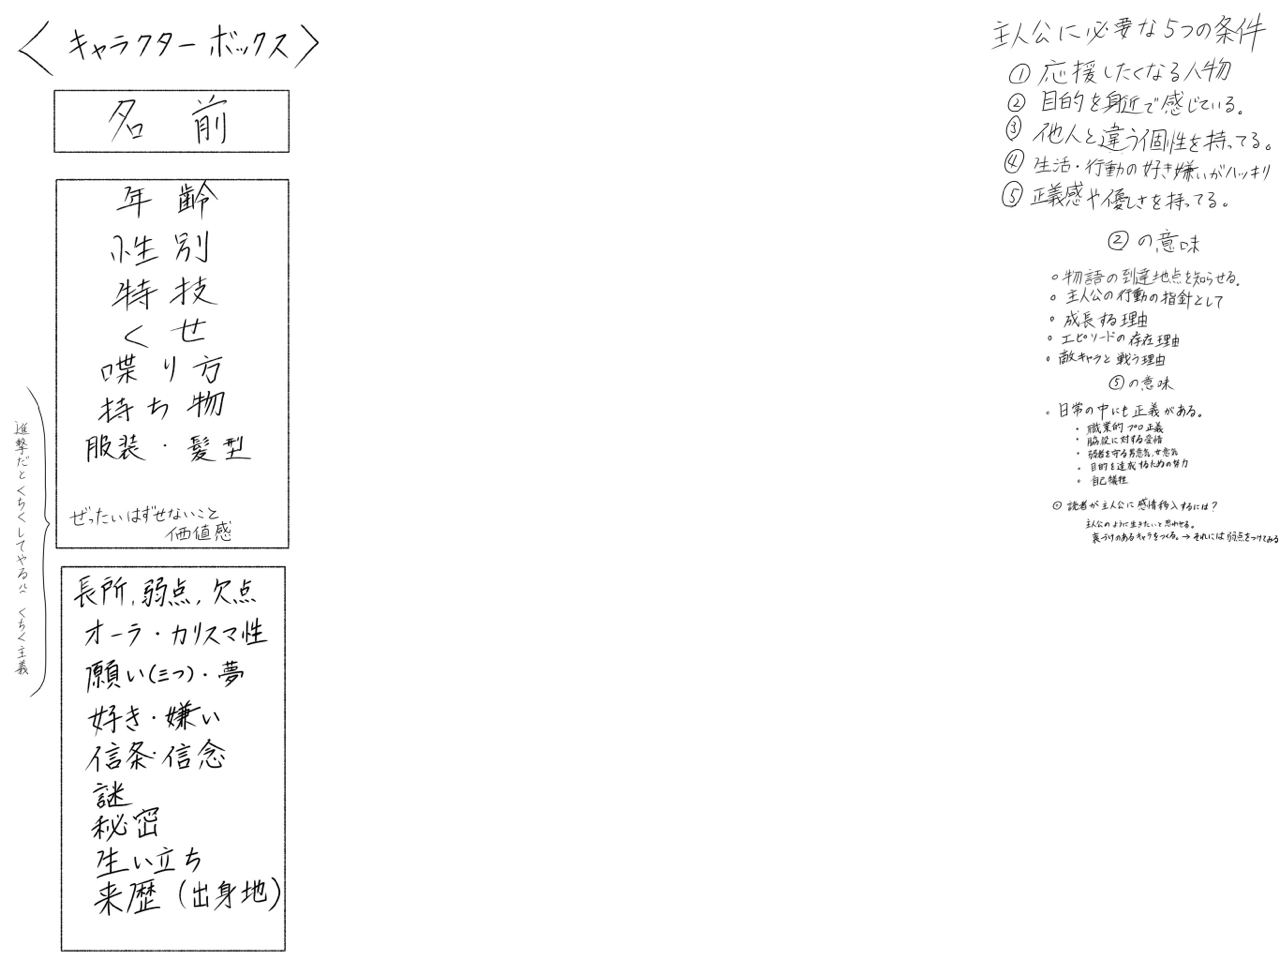 〈キャラクターボックス〉
名前
年齢
性別
特技
くせ
喋り方
持ち物
服装・髪型
ぜったいはずせないこと
価値感
進撃だとくちくしてやる!! くちく主義
長所,弱点,欠点
オーラ・カリスマ性
願い(三つ)・夢
好き・嫌い
信条・信念
謎
秘密
生い立ち
来歴(出身地)
主人公に必要な5つの条件
① 応援したくなる人物
② 目的を身近で感じている。
③ 他人と違う個性を持ってる。
④ 生活・行動の好き嫌いがハッキリ
⑤ 正義感や優しさを持ってる。
②の意味
○物語の到達地点を知らせる。
○主人公の行動の指針として
○成長する理由
○エピソードの存在理由
○敵キャラと戦う理由
⑤の意味
・日常の中にも正義がある。
・職業的プロ正義
・脇役に対する愛情
・弱者を守る男意気、女意気
・目的を達成するための努力
・自己犠牲
読者が主人公に感情移入するには?
主人公のように生きたいと思わせる。
裏づけのあるキャラをつくる。→それには弱点をつけてみる